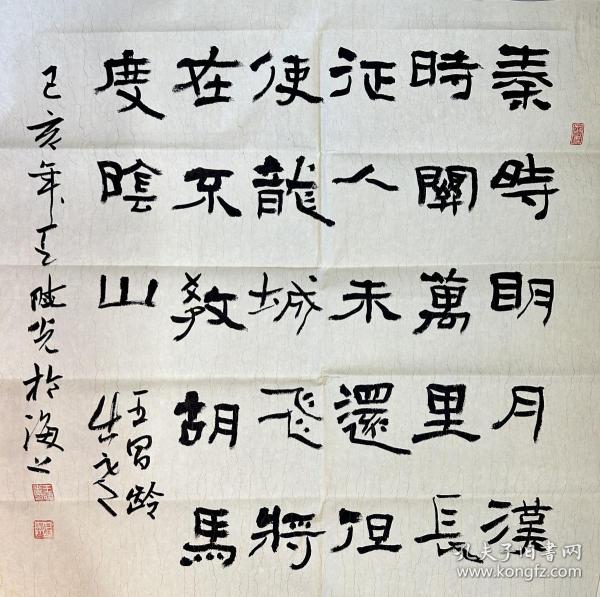 秦時明月漢
時關萬里長
征人未還但
使龍城飛將
在不教胡馬
度陰山
王昌龄
出塞
己亥年 於海上
孔夫子旧书网
www.kongfz.com